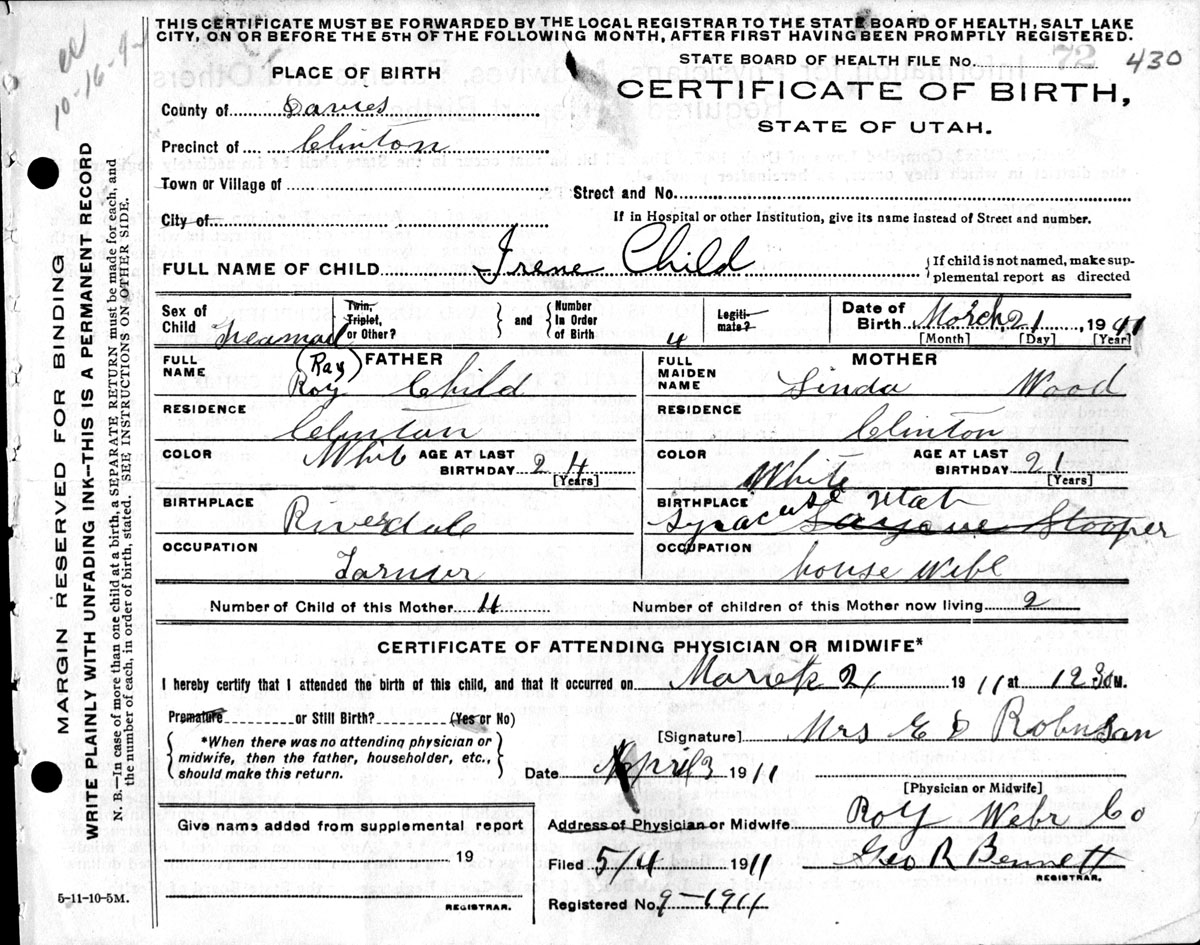 THIS CERTIFICATE MUST BE FORWARDED BY THE LOCAL REGISTRAR TO THE STATE BOARD OF HEALTH, SALT LAKE
CITY, ON OR BEFORE THE 5TH OF THE FOLLOWING MONTH, AFTER FIRST HAVING BEEN PROMPTLY REGISTERED.
10-16-
PLACE OF BIRTH
STATE BOARD OF HEALTH FILE No. 72 430
CERTIFICATE OF BIRTH,
STATE OF UTAH.
County of Davies
Precinct of Clinton
Town or Village of
Street and No.
City of
If in Hospital or other Institution, give its name instead of Street and number.
FULL NAME OF CHILD Irene Child
If child is not named, make sup-
plemental report as directed
Sex of Child Feamail
Twin, Triplet, or Other?
and
Number In Order of Birth 4
Legiti-mate?
Date of Birth March 21, 1911
[Month] [Day] [Year]
FATHER
FULL NAME (Ray) Roy Child
MOTHER
FULL MAIDEN NAME Linda Wood
RESIDENCE Clinton
RESIDENCE Clinton
COLOR White AGE AT LAST BIRTHDAY 24 [Years]
COLOR White AGE AT LAST BIRTHDAY 21 [Years]
BIRTHPLACE Riverdale
BIRTHPLACE Syracuse Utah Stooper
OCCUPATION Farmer
OCCUPATION house Wife
Number of Child of this Mother 4
Number of children of this Mother now living 2
CERTIFICATE OF ATTENDING PHYSICIAN OR MIDWIFE*
I hereby certify that I attended the birth of this child, and that it occurred on March 21 1911 at 1230 M.
Premature or Still Birth? (Yes or No)
*When there was no attending physician or
midwife, then the father, householder, etc.,
should make this return.
[Signature] Mrs E D Robinsan
Date April 3 1911
[Physician or Midwife]
Give name added from supplemental report
19
REGISTRAR.
Address of Physician or Midwife Roy Webr Co
Filed 5/4 1911 Geo R Bennett
REGISTRAR.
Registered No. 9-1911
5-11-10-5M.
MARGIN RESERVED FOR BINDING
WRITE PLAINLY WITH UNFADING INK—THIS IS A PERMANENT RECORD
N. B.—In case of more than one child at a birth, a SEPARATE RETURN must be made for each, and
the number of each, in order of birth, stated. SEE INSTRUCTIONS ON OTHER SIDE.